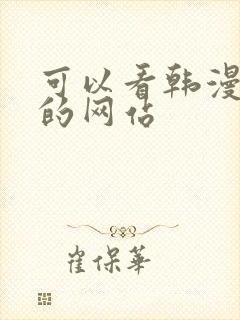 可以看韩漫
的网站
崔保華